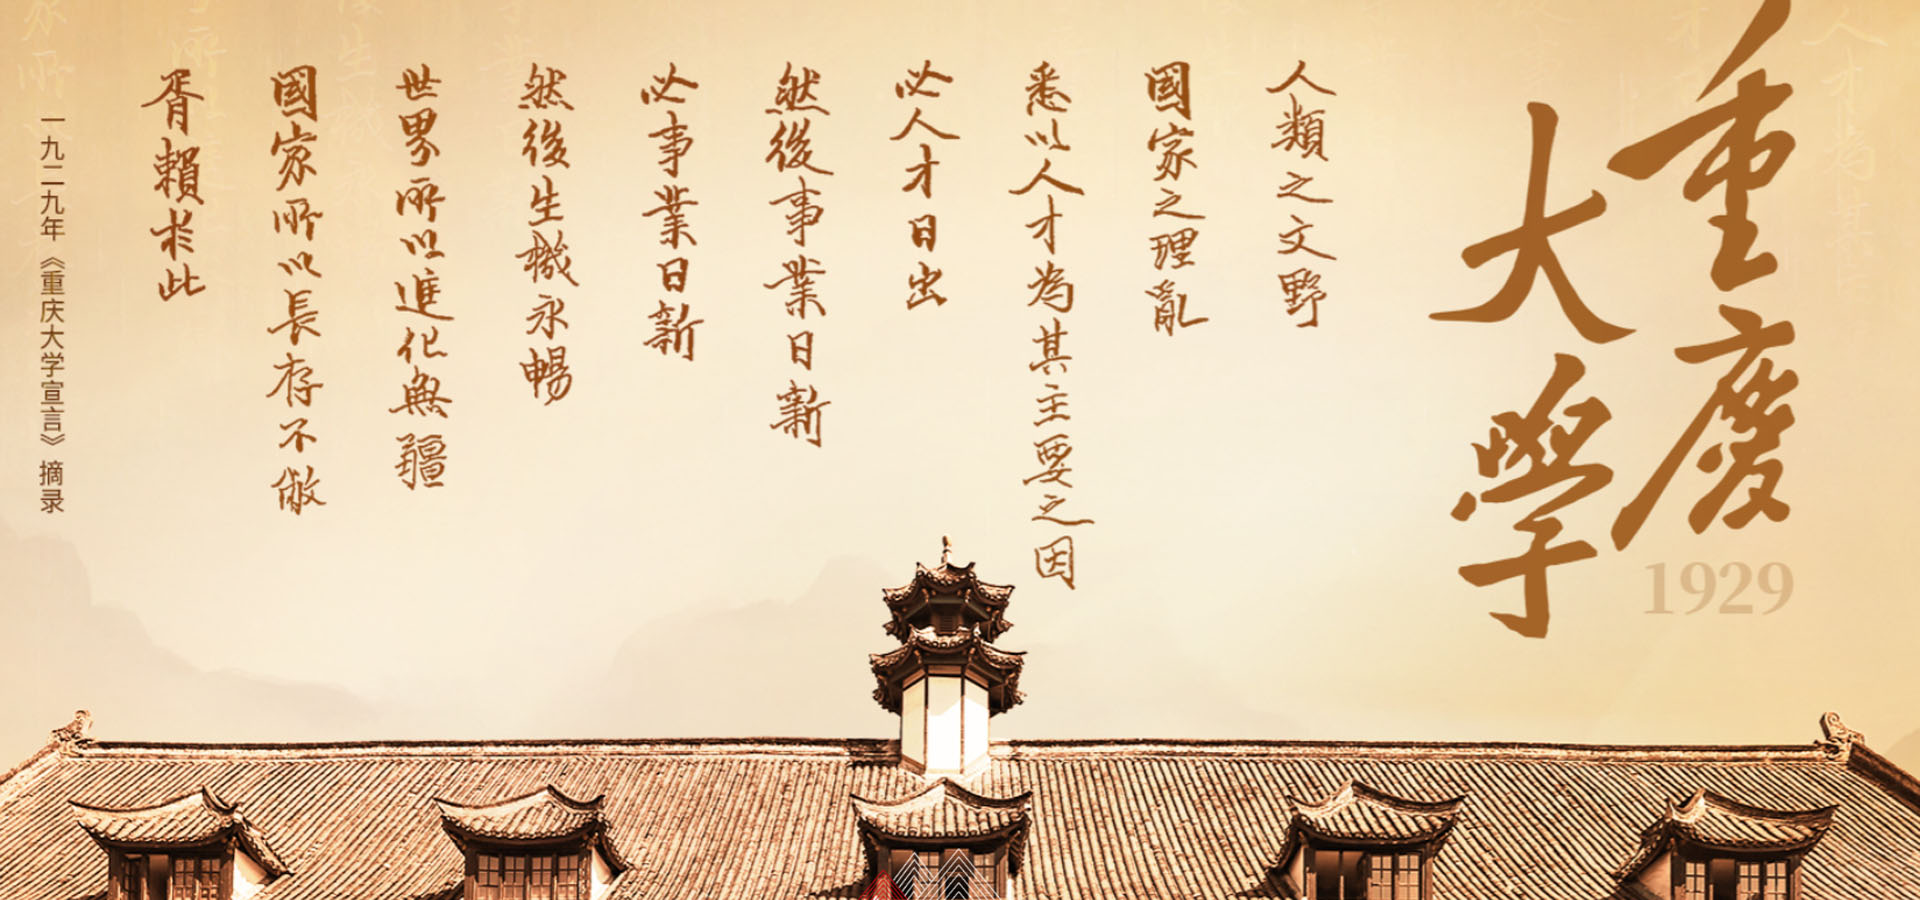 重慶
大學
1929
人類之文野
國家之理亂
悉以人才為其主要之因
必人才日出
然後事業日新
必事業日新
然後生機永暢
世界所以進化無疆
國家所以長存不敝
胥賴於此
一九二九年《重庆大学宣言》摘录